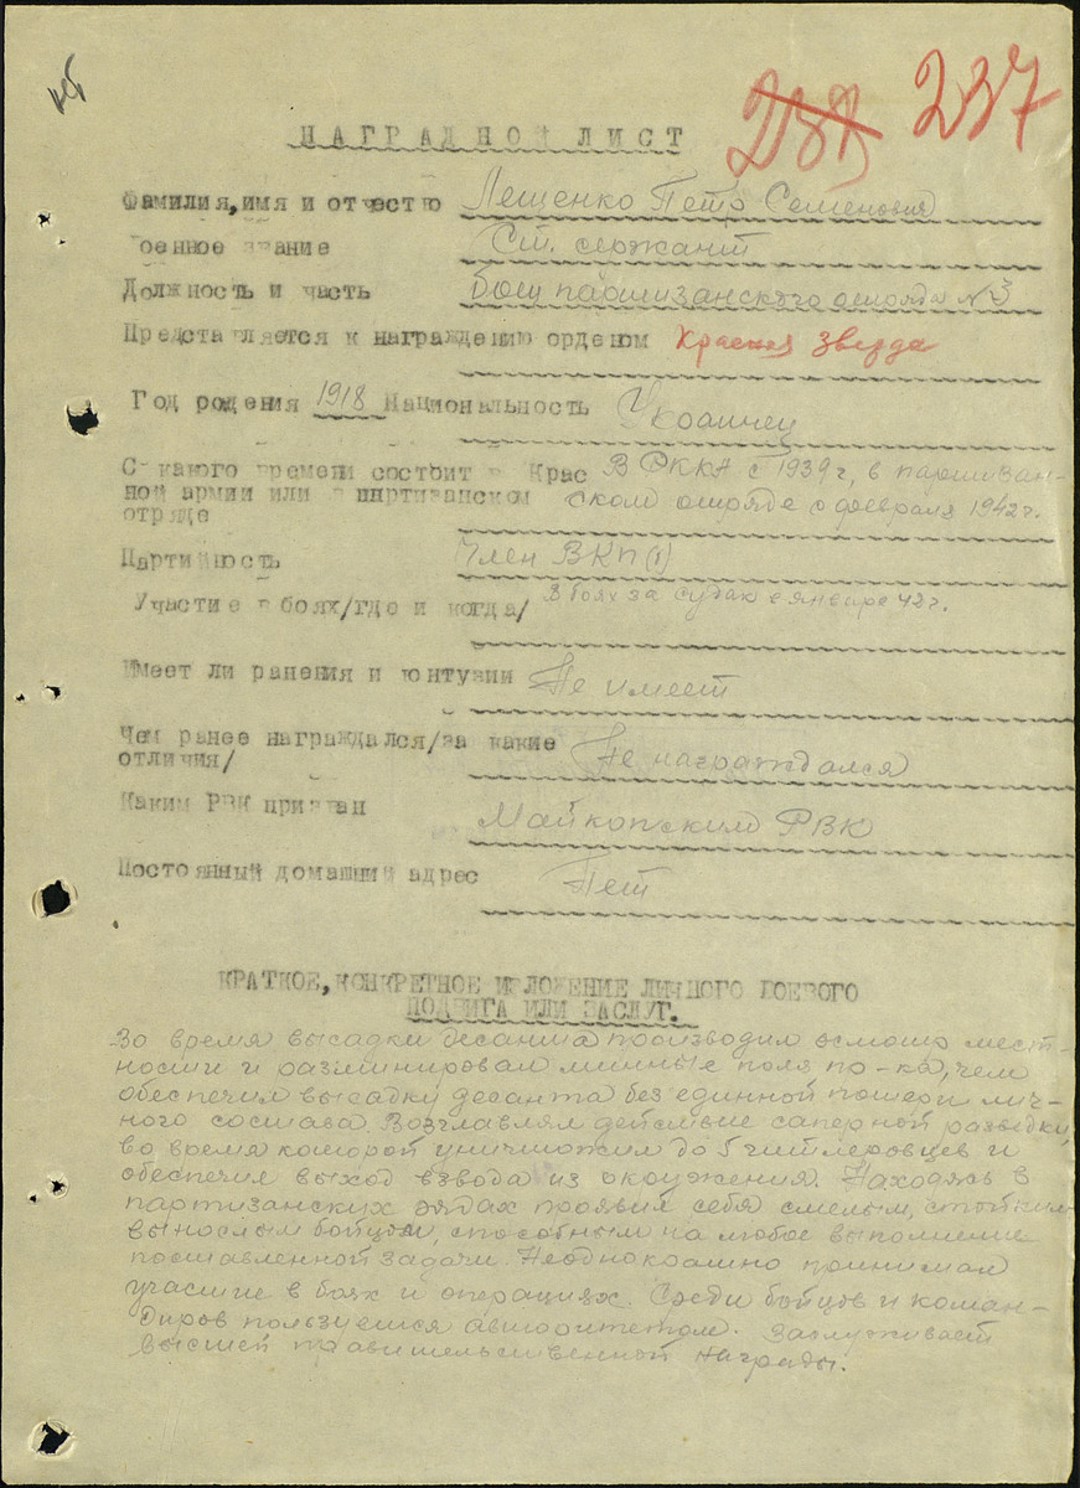 237
НАГРАДНОЙ ЛИСТ
Фамилия, имя и отчество Лещенко Петр Семенович
Военное звание Ст. сержант
Должность и часть боец партизанского отряда № 3
Представляется к награждению орденом Красная звезда
Год рождения 1918 Национальность Украинец
С какого времени состоит в Крас В РККА с 1939 г, в партизан-
ной армии или в партизанском ском отряде с февраля 1942 г.
отряде
Партийность Член ВКП(б)
Участие в боях/где и когда/ В боях за Судак в январе 42 г.
Имеет ли ранения и контузии Не имеет
Чем ранее награждался/за какие Не награждался
отличия/
Каким РВК призван Майкопским РВК
Постоянный домашний адрес Нет
КРАТКОЕ, КОНКРЕТНОЕ ИЗЛОЖЕНИЕ ЛИЧНОГО БОЕВОГО
ПОДВИГА ИЛИ ЗАСЛУГ.
Во время высадки десанта производил осмотр мест-
ности и разминировал минные поля пр-ка, чем
обеспечил высадку десанта без единной потери лич-
ного состава. Возглавлял действие саперной разведки,
во время которой уничтожил до 5 гитлеровцев и
обеспечил выход взвода из окружения. Находясь в
партизанских рядах проявил себя смелым, стойким
выносливым бойцом, способным на любое выполнение
поставленной задачи. Неоднократно принимал
участие в боях и операциях. Среди бойцов и коман-
диров пользуется авторитетом. Заслуживает
высшей правительственной награды.